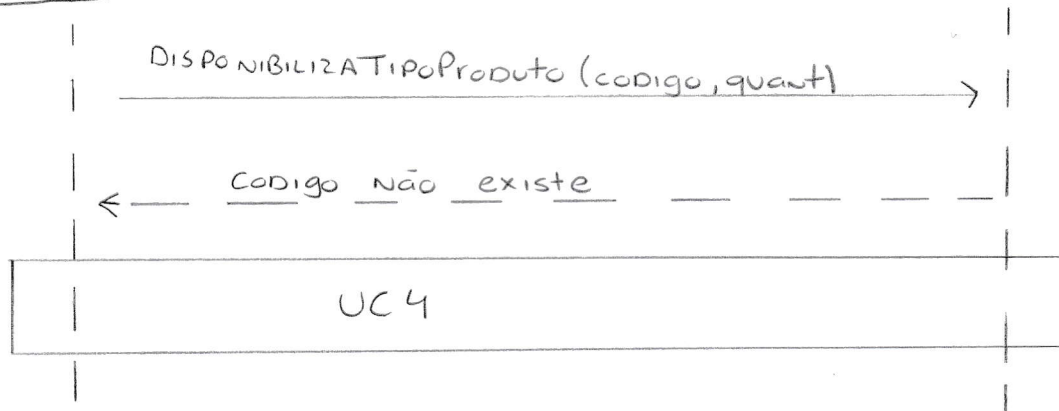 DISPONIBILIZATIPOPRODUTO (CODIGO, quant)
CODIGO NÃO existe
UC4